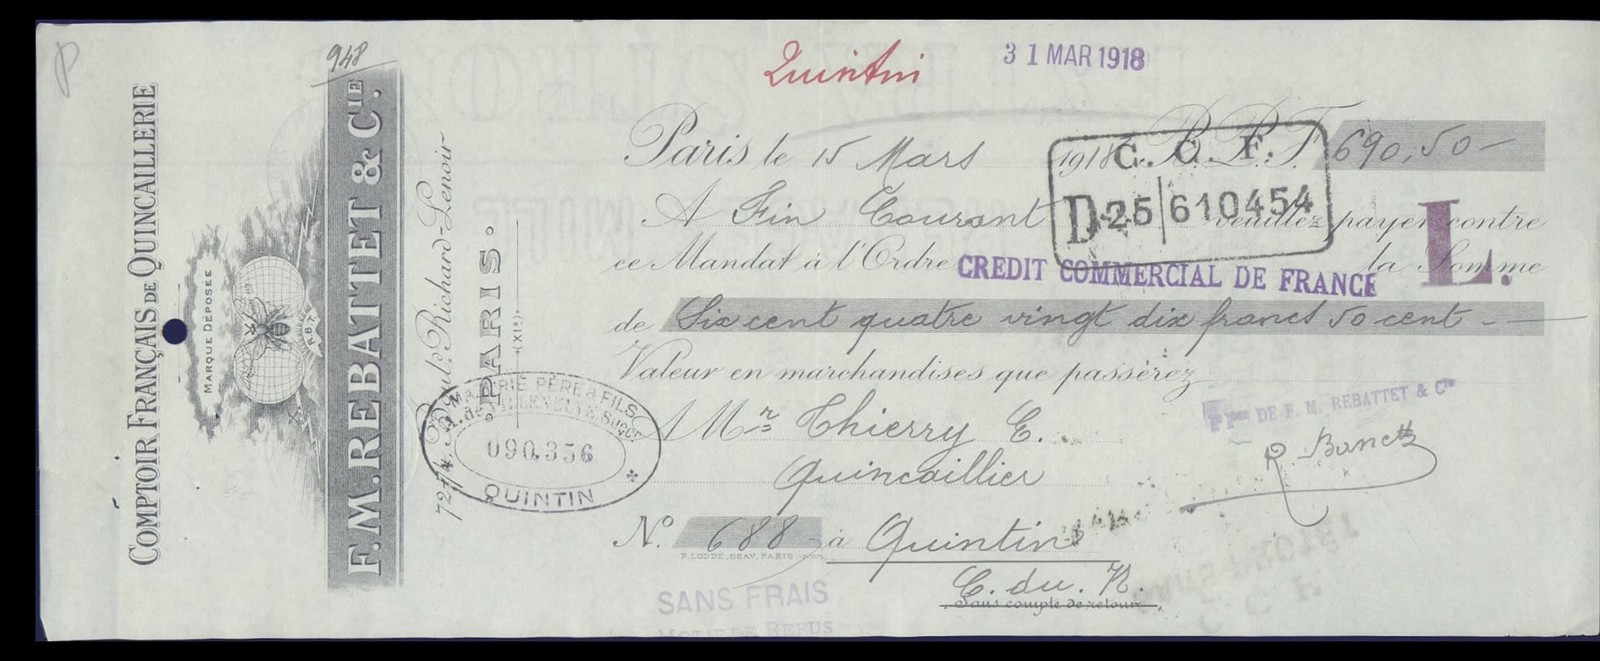 P
948
COMPTOIR FRANÇAIS DE QUINCAILLERIE
MARQUE DÉPOSÉE
R.B.T.
F.M. REBATTET & CIE.
72, Boul.d Richard-Lenoir
PARIS.
(XIe)
Quintin
31 MAR 1918
Paris le 15 Mars 1918 B.P.F. 690,50
C. C. F.
D 25 610454
A Fin Courant veuillez payer contre
ce Mandat à l'Ordre CREDIT COMMERCIAL DE FRANCE la Somme
L.
de Six cent quatre vingt dix francs 50 cent
Valeur en marchandises que passerez
PÈRE & FILS
090.336
QUINTIN
A Mr Thierry E.
Quincaillier
DE F. M. REBATTET & Cie
No. 688 à Quintin
P. LODDÉ, GRAV. PARIS
C. du. N.
Sans compte de retour
SANS FRAIS
MOTIF DE REFUS